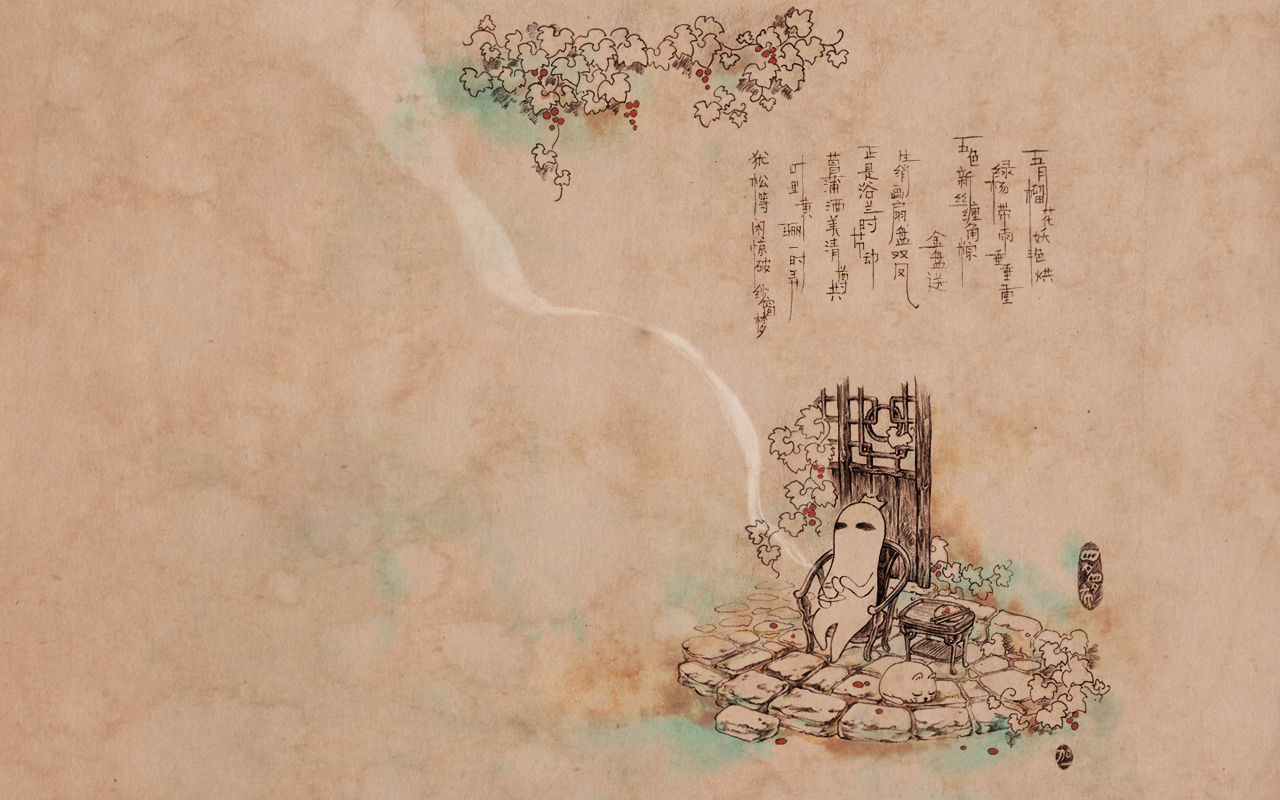 五月榴花妖艳烘
绿杨带雨垂垂重
五色新丝缠角粽
金盘送
生绡画扇盘双凤
正是浴兰时节动
菖蒲酒美清樽共
叶里黄骊一时弄
犹松等闲惊破纱窗梦
加